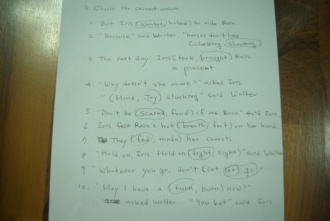 2. Choose the correct answer
1. "But Iris (wanted, hated) to ride Rosie
2. "Because" said Walter, "horses don't like
climbing, standing)
3. The next day Iris (took, brought) Rosie
a present
4. "Why doesn't she move?" asked Iris
"(Mind, Try) clucking" said Walter
5 "Don't be (scared, fond) of me Rosie" said Iris
6 Iris felt Rosie's hot (breath, fort) on her hand
7 They (fed, made) her carrots
8 "Hold on, Iris. Hold on (tight, right)" said Walter
9 "Whatever you do, don't (let, get) go"
10 "May I have a (turn, burn) now?"
asked Walter. "You bet" said Iris